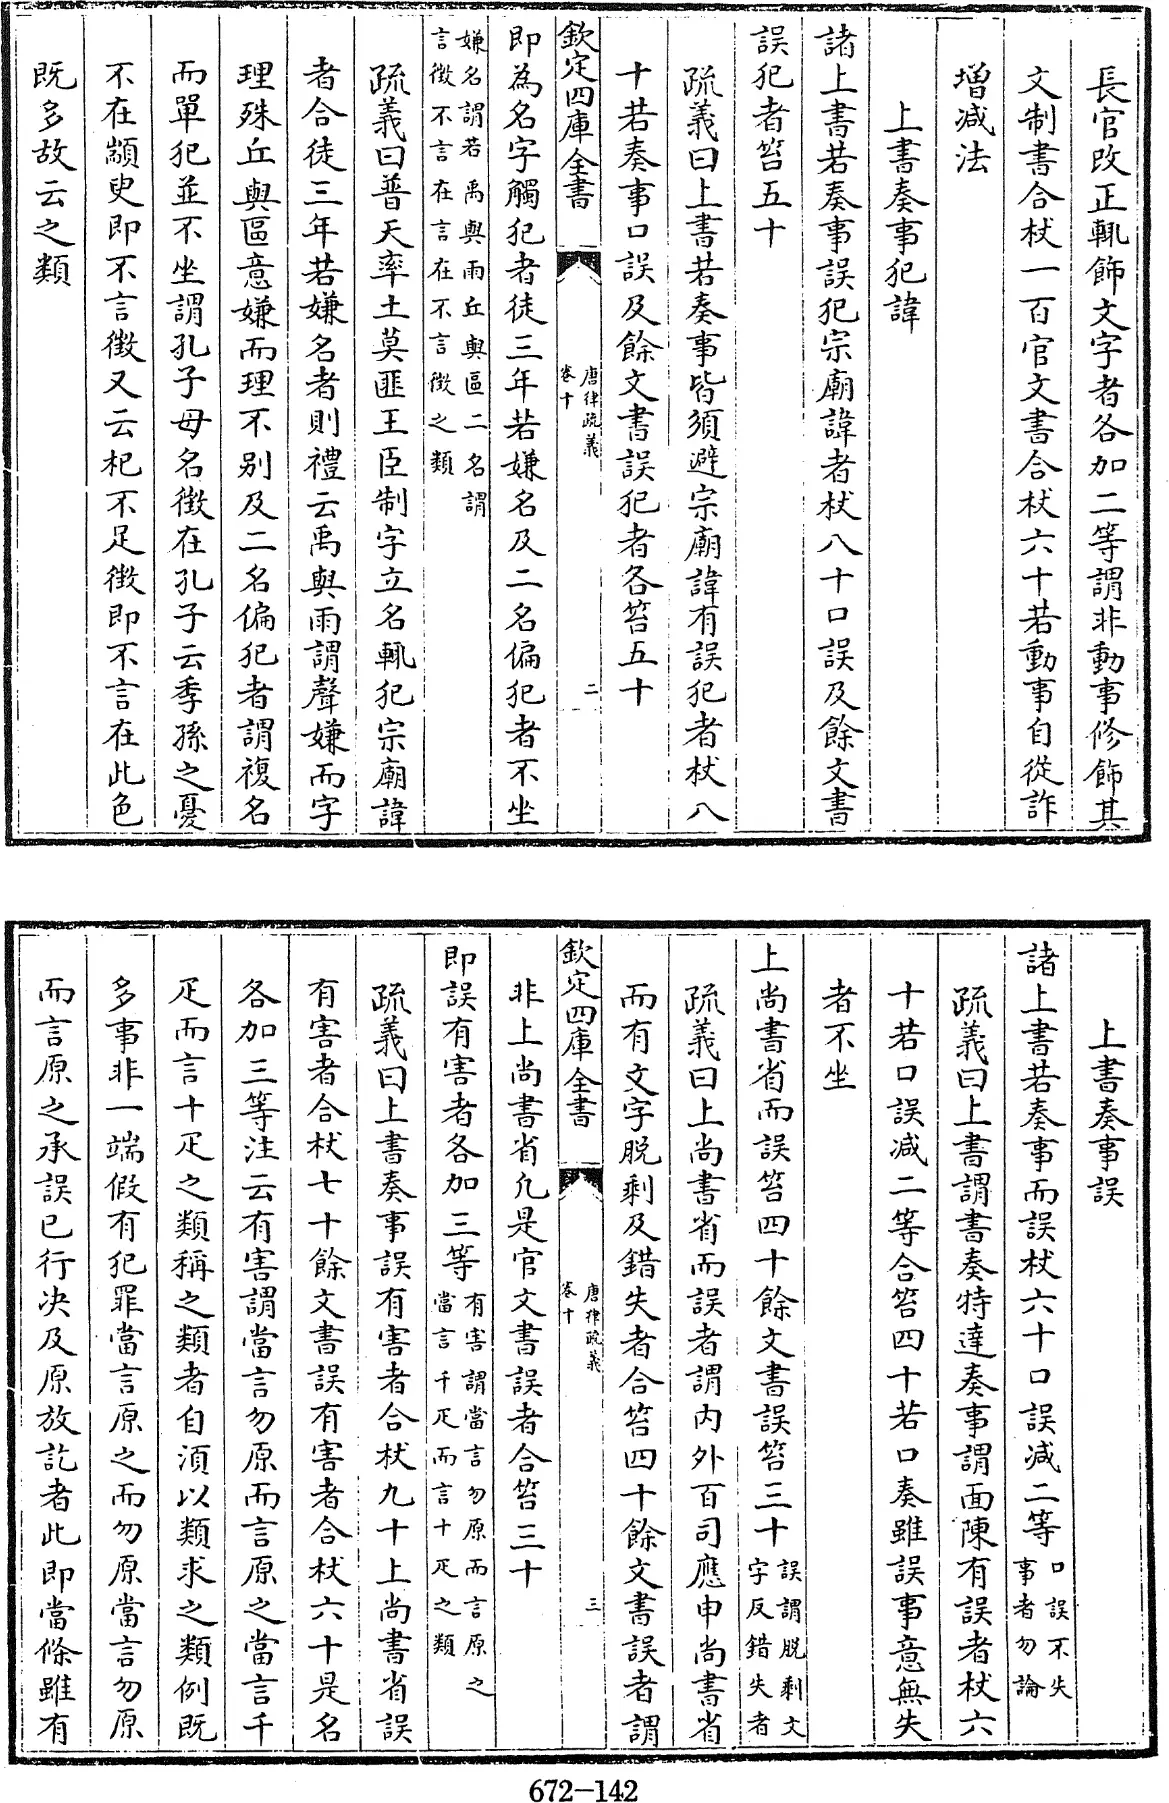 長官改正輒飾文字者各加二等謂非動事修飾其
文制書合杖一百官文書合杖六十若動事自從詐
增減法
上書奏事犯諱
諸上書若奏事誤犯宗廟諱者杖八十口誤及餘文書
誤犯者笞五十
疏義曰上書若奏事皆須避宗廟諱有誤犯者杖八
十若奏事口誤及餘文書誤犯者各笞五十
欽定四庫全書
唐律疏義
卷十
二
即為名字觸犯者徒三年若嫌名及二名偏犯者不坐
嫌名謂若禹與雨丘與區二名謂
言徵不言在言在不言徵之類
疏義曰普天率土莫匪王臣制字立名輒犯宗廟諱
者合徒三年若嫌名者則禮云禹與雨謂聲嫌而字
理殊丘與區意嫌而理不别及二名偏犯者謂複名
而單犯並不坐謂孔子母名徵在孔子云季孫之憂
不在顓臾即不言徵又云杞不足徵即不言在此色
既多故云之類
上書奏事誤
諸上書若奏事而誤杖六十口誤减二等
口誤不失
事者勿論
疏義曰上書謂書奏特達奏事謂面陳有誤者杖六
十若口誤减二等合笞四十若口奏雖誤事意無失
者不坐
上尚書省而誤笞四十餘文書誤笞三十
誤謂脱剩文
字反錯失者
疏義曰上尚書省而誤者謂内外百司應申尚書省
而有文字脱剩及錯失者合笞四十餘文書誤者謂
欽定四庫全書
唐律疏義
卷十
三
非上尚書省凢是官文書誤者合笞三十
即誤有害者各加三等
有害謂當言勿原而言原之
當言千疋而言十疋之類
疏義曰上書奏事誤有害者合杖九十上尚書省誤
有害者合杖七十餘文書誤有害者合杖六十是名
各加三等注云有害謂當言勿原而言原之當言千
疋而言十疋之類稱之類者自湏以類求之類例既
多事非一端假有犯罪當言原之而勿原當言勿原
而言原之承誤已行决及原放訖者此即當條雖有
672-142